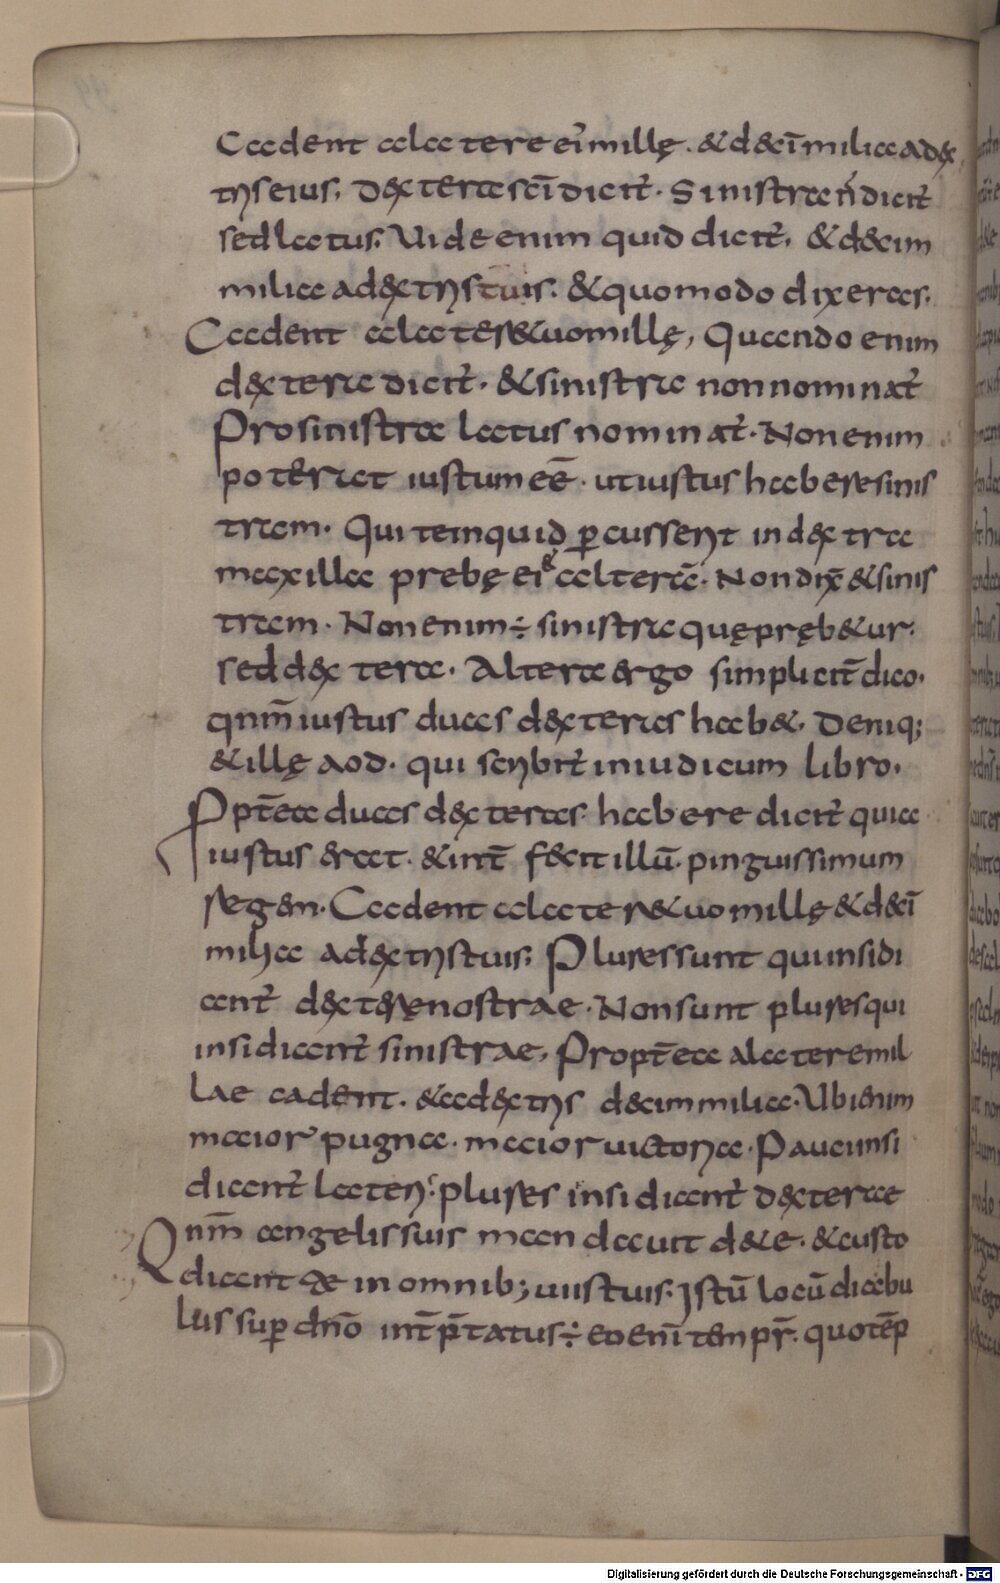 Cadent a latere ei᾽ millę. & dećī milia adex
tris eius; Dextera sćī dicit̄. Sinistra ń dicit̄
sed latus; Vide enim quid dicit̄. & decim
milia adextris tuis. & quomodo dixeras;
Cadent a latere tuo millę, Quando enim
dextera dicit̄. & sinistra non nominat̄
Pro sinistra latus nominat̄. Non enim
poterat iustum eē̄. ut iustus habere sinis
tram. Qui te inquid ꝑcusserit in dextra
maxilla prebę ei & alterā. Non dix̄ & sinis
tram. Non enim ÷ sinistra quę pręb&ur.
sed dextera. Altera ergo simplicit̄ dico.
qnm̄ iustus duas dexteras hab&. Deniq;
& illę aod. qui scribit̄ in iudicum libro.
Ppt̄ea duas dexteras habere dicit̄ quia
iustus erat. & int̄fecit illū. pinguissimum
regem. Cadent a latere tuo millę & dećī
milia adextris tuis; Plures sunt qui insidi
ant̄ dexterę nostrae. Non sunt plures qui
insidiant̄ sinistrae, Propt̄ea a latere mil
lae cadent. & a dextris decim milia. Vbi enim
maior pugna. maior uictoria. Pauci insi
diant̄ lateri; plures insidiant̄ dexterae
Qnm̄ angelis suis mandauit de te. & custo
diant te in omnib; uiis tuis; Istū locū diabu
lus sup̱ dn̄o int̄p̄tatus ÷ eo enī tempr̄. quo tēp
Digitalisierung gefördert durch die Deutsche Forschungsgemeinschaft - DFG